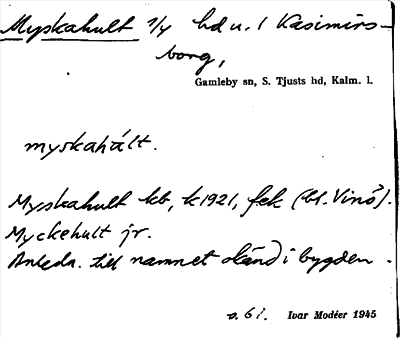 Myskahult 1/4 hd u. l Kasimirs-
borg,
Gamleby sn, S. Tjusts hd, Kalm. l.
myskahált.
Myskahult kb, k 1921, fek (bl. Vinö).
Myckehult jr.
Anledn. till namnet okänd i bygden.
o. 61. Ivar Modéer 1945